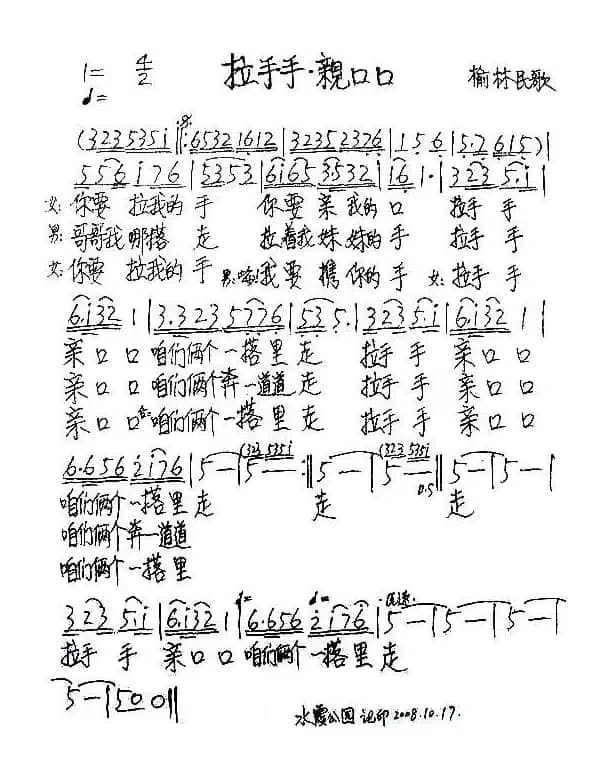 1= 4/2 拉手手·親口口 榆林民歌
(323 535i ‖: 6532 1612 | 3235 2376 | 1 5 6 | 5.7 615) |
556 i76 | 5353 | 6i65 3532 | 16 1· | 323 5.i |
女: 你要 拉我的 手 你要 亲 我的 口 拉手 手
男: 哥哥我 哪搭 走 拉着我 妹妹的 手 拉手 手
女: 你要 拉我的 手 男: 我要 携 你的 手 女: 拉手 手
6.i32 1 | 3.323 5776 | 53 5. | 323 5.i | 6.i32 1 |
亲 口 口 咱们俩个 一搭里 走 拉手 手 亲 口 口
亲 口 口 咱们俩个奔 一道道 走 拉手 手 亲 口 口
亲 口 口 咱们俩个 一搭里 走 拉手 手 亲 口 口
6.656 2i76 | 5 — | 5 — :‖ 5 — | 5 — ‖ 5 — | 5 — |
(323 535i (323 535i
D.S
咱们俩个 一搭里 走 走 走
咱们俩个奔 一道道
咱们俩个 一搭里
323 5.i | 6.i32 1 | 6.656 2i76 | 5 — | 5 — | 5 — |
拉手 手 亲 口 口 咱们俩个 一搭里 走
5 — | 50 0 ‖
水霞公园 记印 2008.10.17.